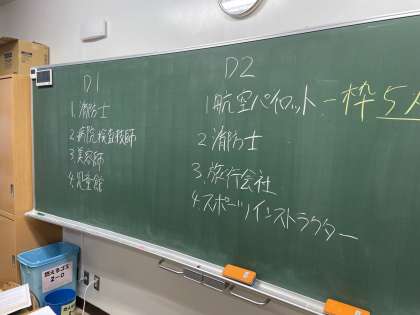 D1
1.消防士
2.病院検査技師
3.美容師
4.児童館
D2
1.航空パイロット一枠5人
2.消防士
3.旅行会社
4.スポーツインストラクター
燃えるゴミ
2-D